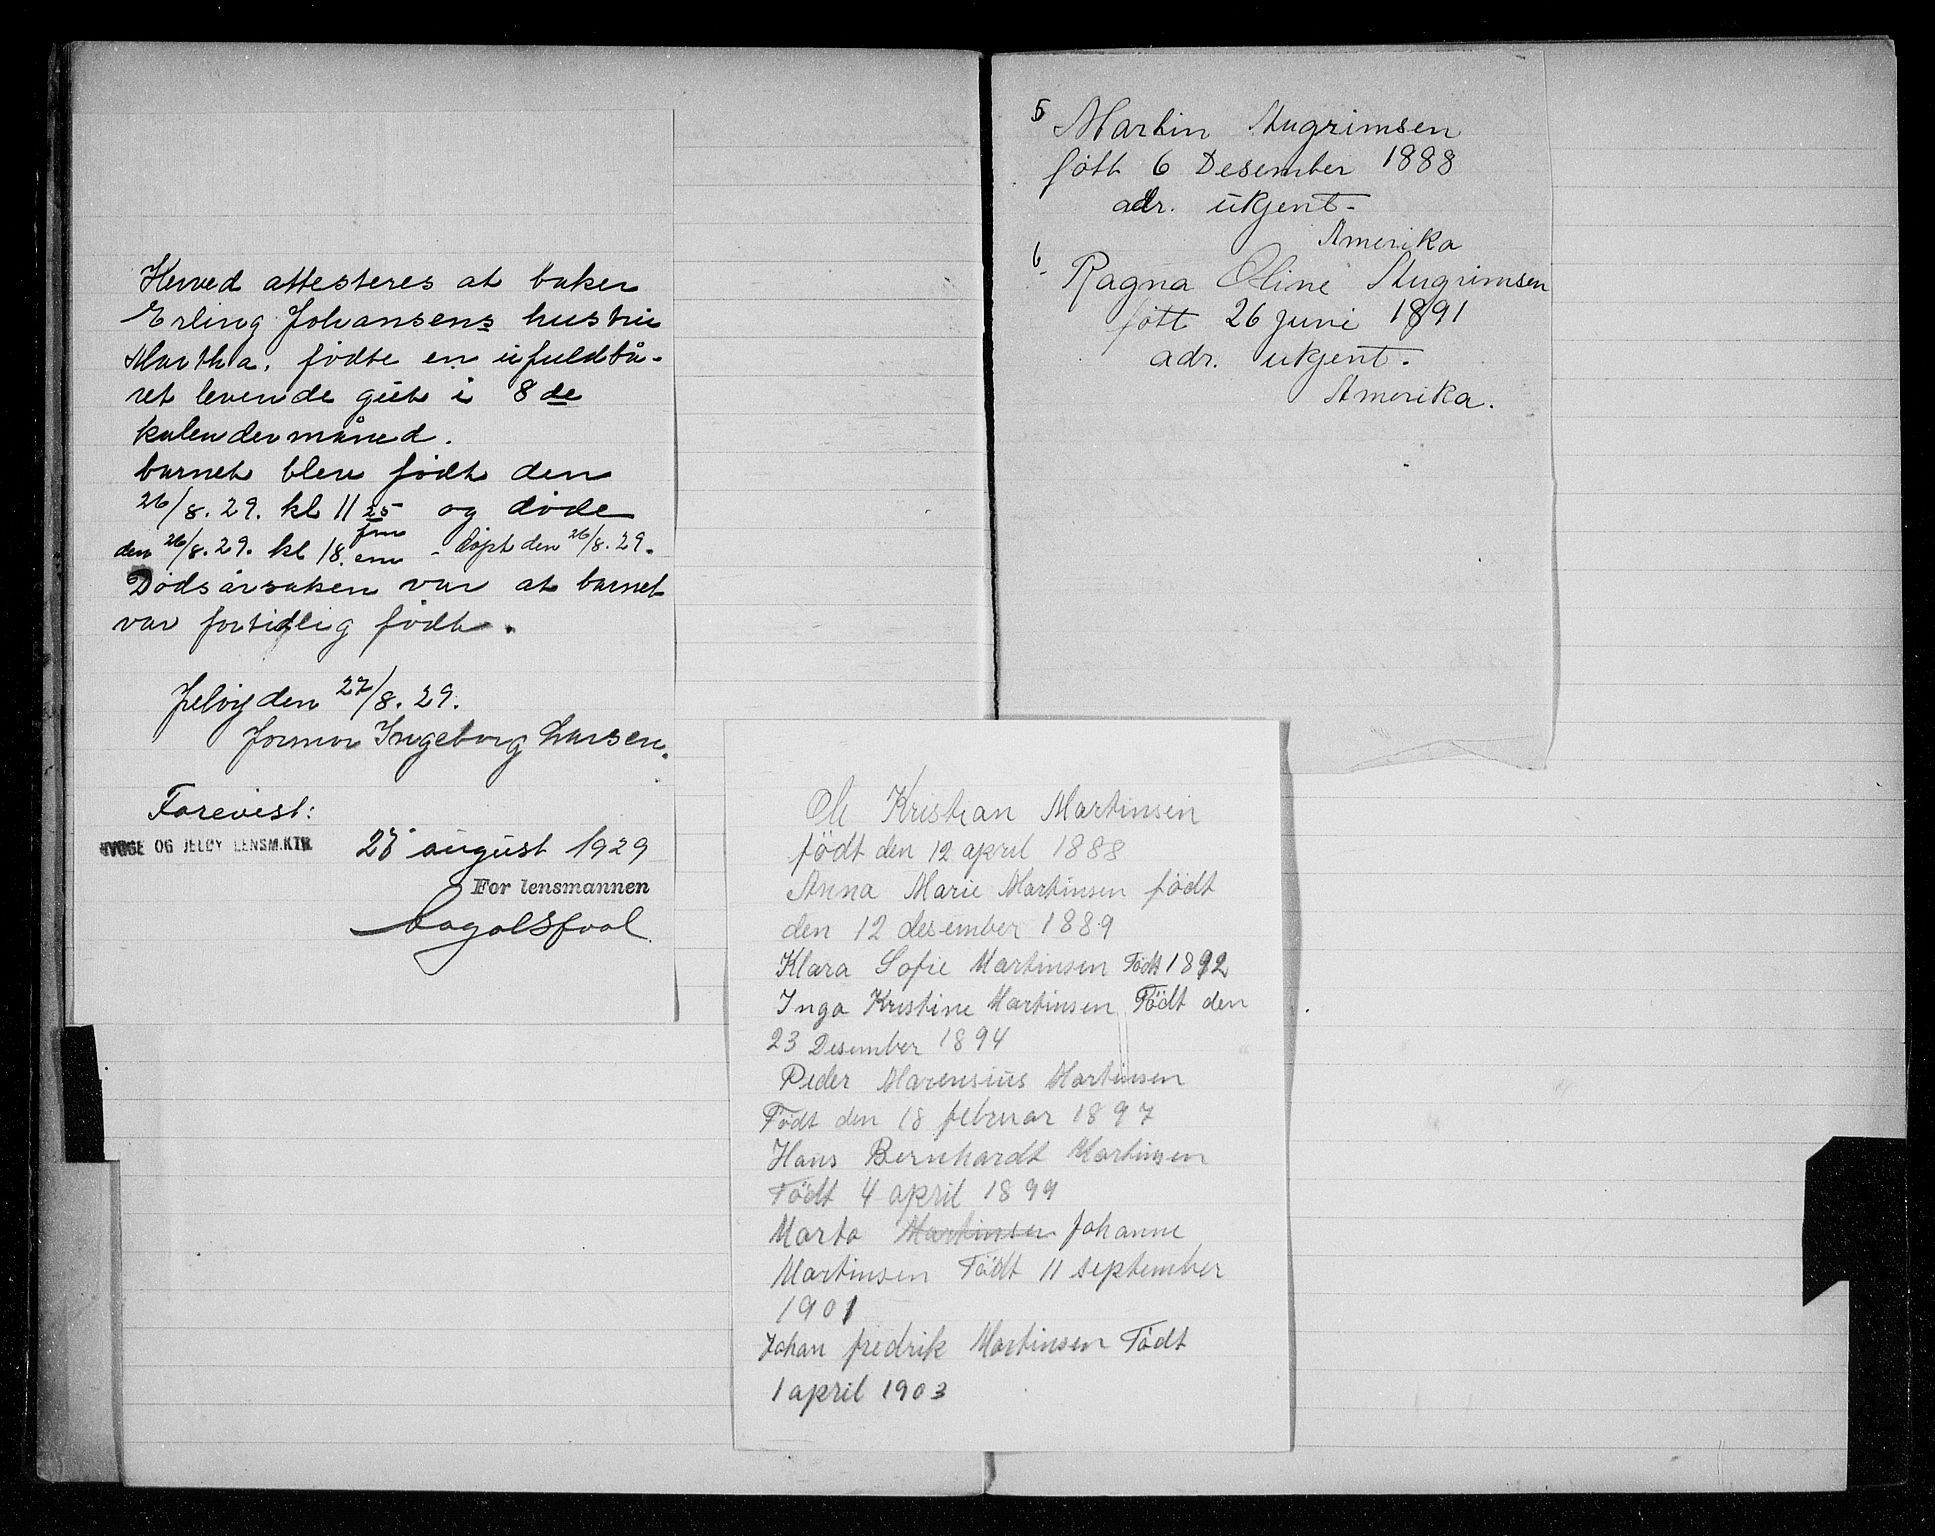 Herved attesteres at baker
Erling Johansens hustru
Martha, fødte en ufuldbå-
ret levende gut i 8de
kalendermåned.
barnet blev født den
26/8. 29. kl 11 25 fm og døde
den 26/8. 29. kl 18. em - døpt den 26/8. 29.
Dødsårsaken var at barnet
var fortidlig født.
Jeløy den 27/8. 29.
Jormor Ingeborg Larsen.
Forevist:
RYGGE OG JELØY LENSM.KTR.
28 august 1929
For lensmannen
5 Martin
føtt 6 Desember 1888
adr. ukjent-
Amerika
6 Ragna Oline
føtt 26 juni 1891
adr. ukjent.
Amerika.
Ole Kristian Martinsen
født den 12 april 1888
Anna Marie Martinsen født
den 12 desember 1889
Klara Sofie Martinsen Født 1892
Inga Kristine Martinsen Født den
23 Desember 1894
Peder Marensius Martinsen
Født den 18 februar 1897
Hans Bernhardt Martinsen
Født 4 april 1899
Marta Martinsen Johanne
Martinsen Født 11 september
1901
Johan fredrik Martinsen Født
1 april 1903